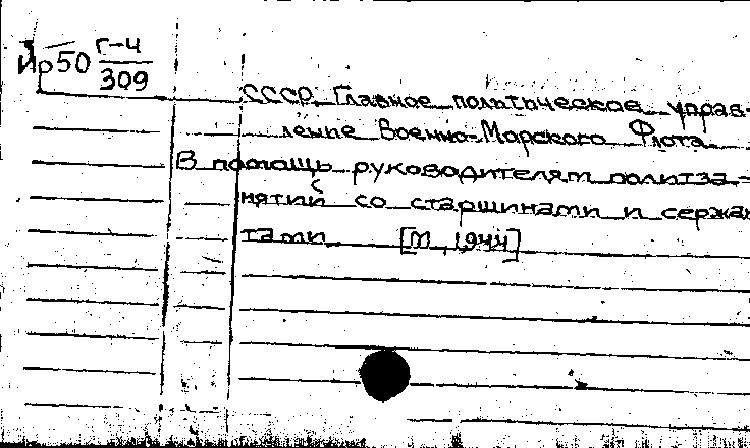 Ир50 Г-4
309
СССР. Главное политическое управ-
ление Военно-Морского Флота.
В помощь руководителям политза-
нятий со старшинами и сержан
тами [М., 1944]